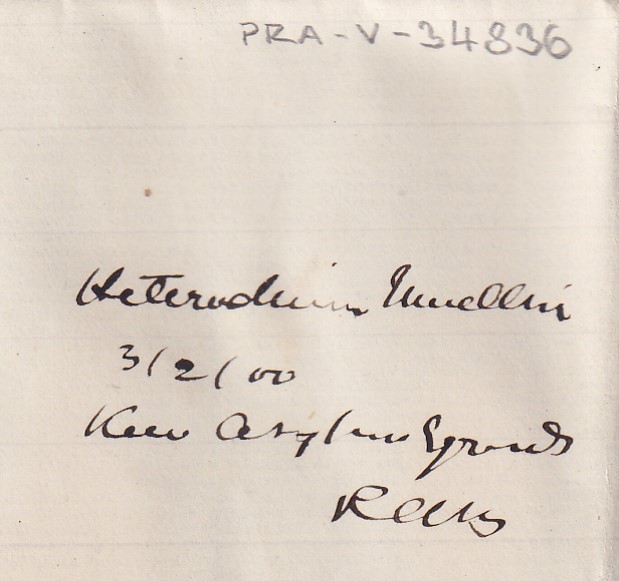 PRA-V-34836
Muelleri
3/2/00
Kew Asylum Grounds